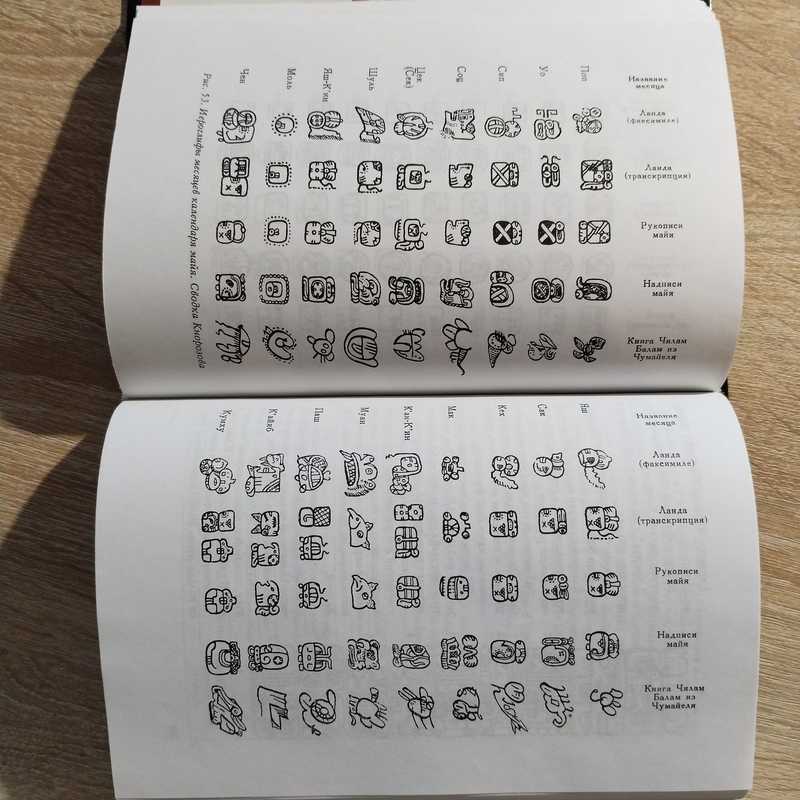 Название
месяца
Ланда
(факсимиле)
Ланда
(транскрипция)
Рукописи
майя
Надписи
майя
Книга Чилам
Балам из
Чумайеля
Поп
Уо
Сип
Соц
Цек
(Сек)
Шуль
Яш-К'ин
Моль
Чен
Рис. 53. Иероглифы месяцев календаря майя. Сводка Кнорозова
Название
месяца
Ланда
(факсимиле)
Ланда
(транскрипция)
Рукописи
майя
Надписи
майя
Книга Чилам
Балам из
Чумайеля
Яш
Сак
Кех
Мак
К'ан-К'ин
Муан
Паш
Кумху